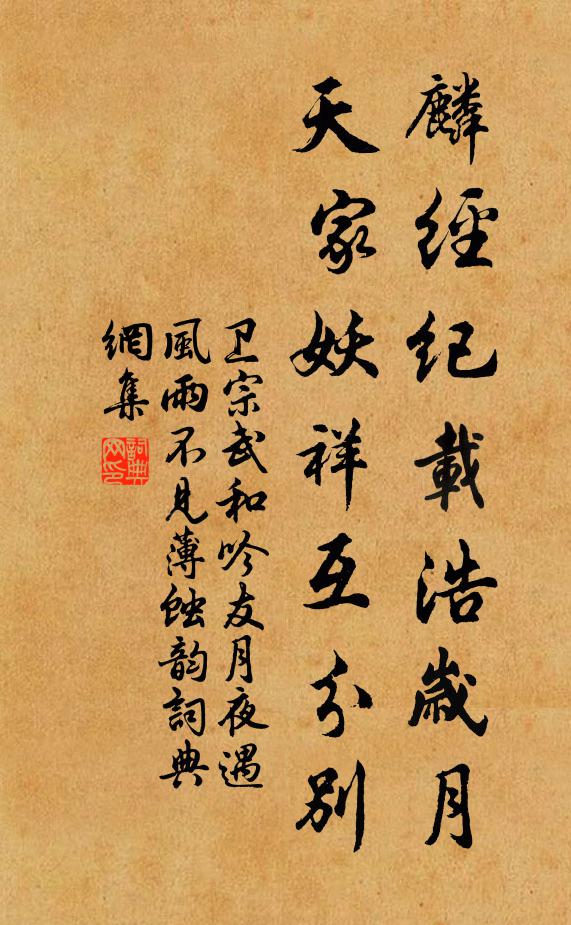 麟經紀載浩歲月
天家妖祥互分別
卫宗武和吟友月夜遇
風雨不見薄蝕韵詞典
網集
詞典网印